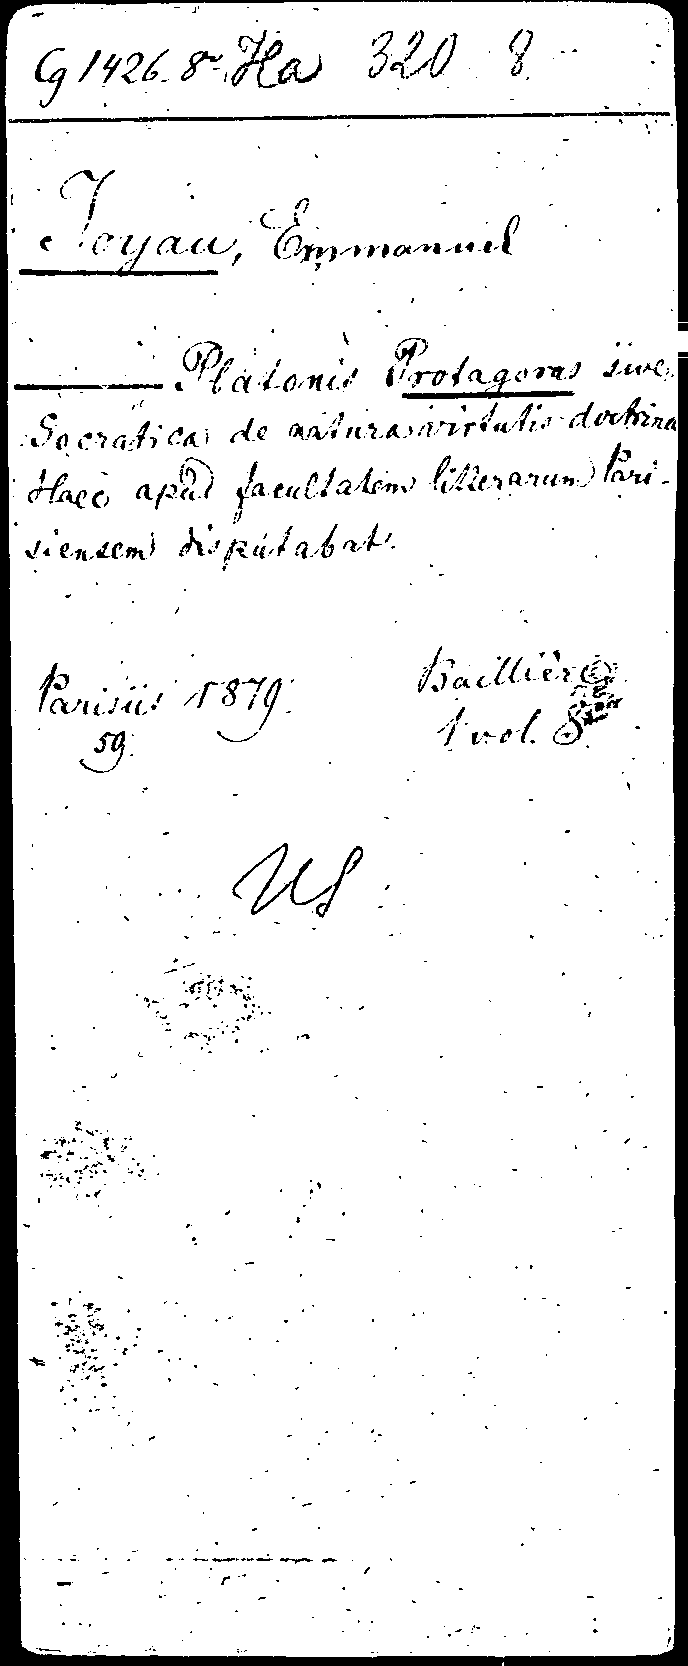 Cg 1426. 8º Ha 320 8
Joyau, Emmanuel
——— Platonis Protagoras sive
Socratica de natura virtutis doctrina
Haec apud facultatem litterarum Pari-
siensem disputabat.
Parisiis 1879. Baillière
59. 1 vol. 8º